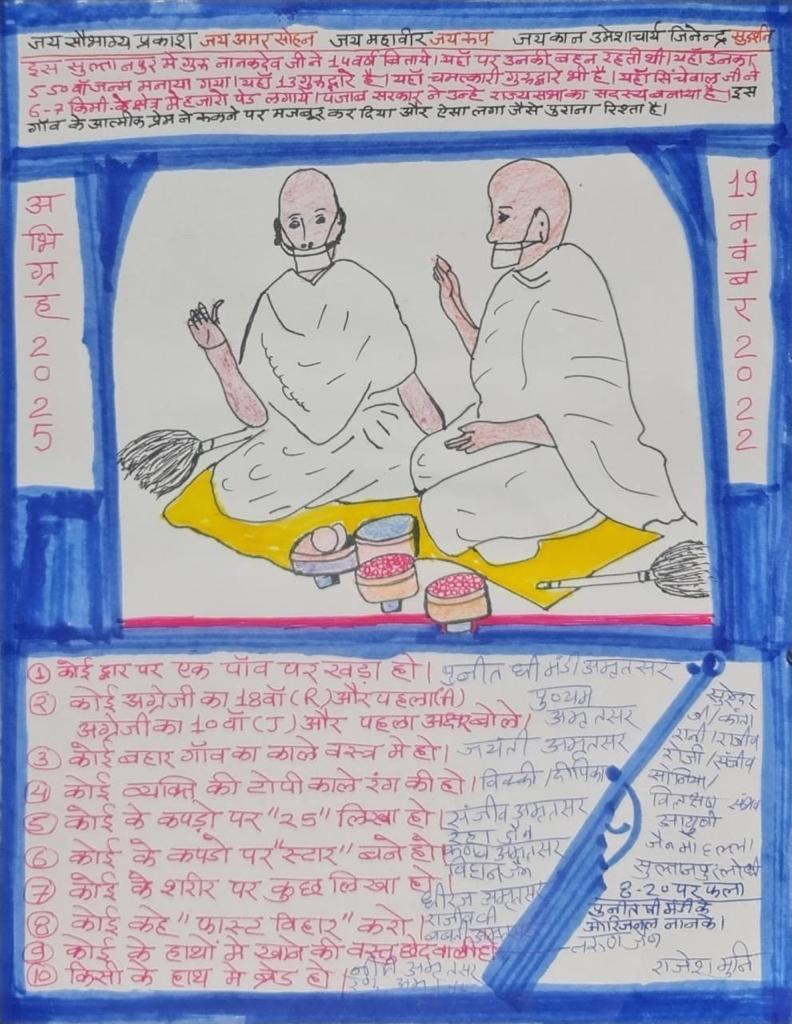 जय सौभाग्य प्रकाश जय अमर सोहन जय महावीर जय रूप जय कान उमेशाचार्य जिनेन्द्र सुदर्शन
इस सुल्तानपुर में गुरु नानकदेव जी ने 14 वर्ष बिताये। यहाँ पर उनकी बहन रहती थी। यहाँ उनका
550 वाँ जन्म मनाया गया। यहाँ 13 गुरुद्वारे है। यहाँ चमत्कारी गुरुद्वार भी है। यहाँ सिंचेवाल जी ने
6-7 किमी के क्षेत्र मे हजारो पेड लगाये। पंजाब सरकार ने उन्हे राज्यसभा का सदस्य बनाया है। इस
गाँव के आत्मीक प्रेम ने रुकने पर मजबूर कर दिया और ऐसा लगा जैसे पुराना रिश्ता है।
अभिग्रह 2025
19 नवंबर 2022
① कोई द्वार पर एक पाँव पर खड़ा हो। पुनीत घी मंडी अमृतसर
② कोई अग्रेजी का 18वाँ (R) और पहला (A)
अग्रेजी का 10वाँ (J) और पहला अक्षर बोले। पुण्यम अमृतसर
③ कोई बहार गाँव का काले वस्त्र मे हो। जयंती अमृतसर
④ कोई व्यक्ति की टोपी काले रंग की हो। विक्की / दीपिका
⑤ कोई के कपड़ो पर "25" लिखा हो। संजीव अमृतसर
⑥ कोई के कपडो पर "स्टार" बने हो। अमृतसर
⑦ कोई के शरीर पर कुछ लिखा हो।
धीरज अमृतसर
⑧ कोई कहे "फास्ट विहार" करो।
⑨ कोई के हाथों मे खाने की वस्तु छेदवाली हो तरुण जैन
⑩ किसी के हाथ मे ब्रेड हो। अमृतसर
सुरेन्द्र
जी / कांता
रानी / राजीव
रोजी / संजीव
सोनिया /
विलक्षण
आयुषी
जैन मोहल्ला
सुल्तानपुर लोधी
8-20 पर फला
पुनीत घी मंडी के
ओरिजनल नानके।
राजेश मुनि